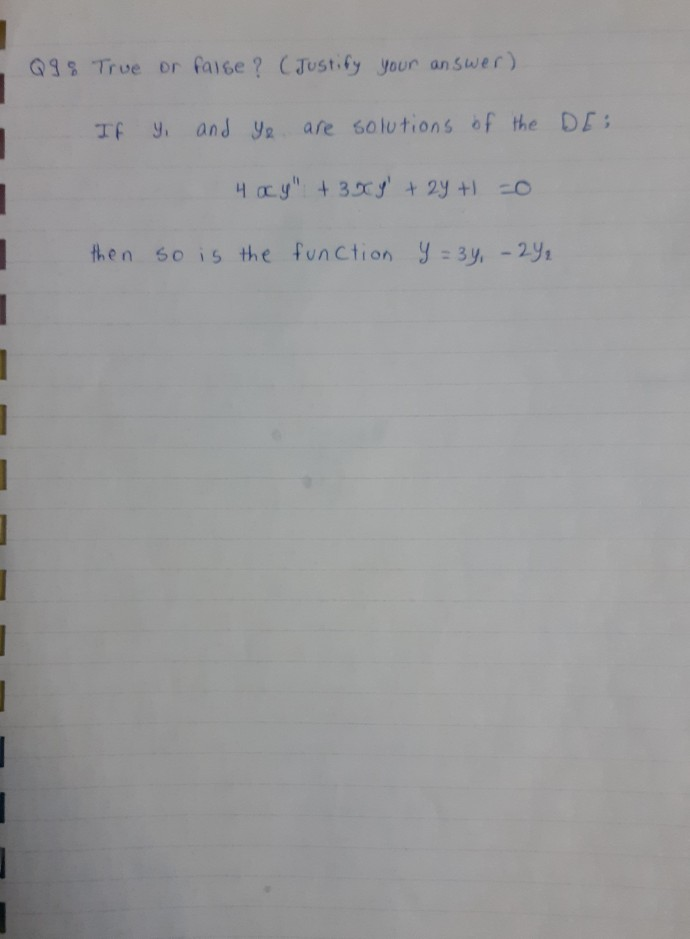 Q9: True or false? (Justify your answer)
If y₁ and y₂ are solutions of the DE:
4xy" + 3xy' + 2y +1 =0
then so is the function y = 3y₁ - 2y₂